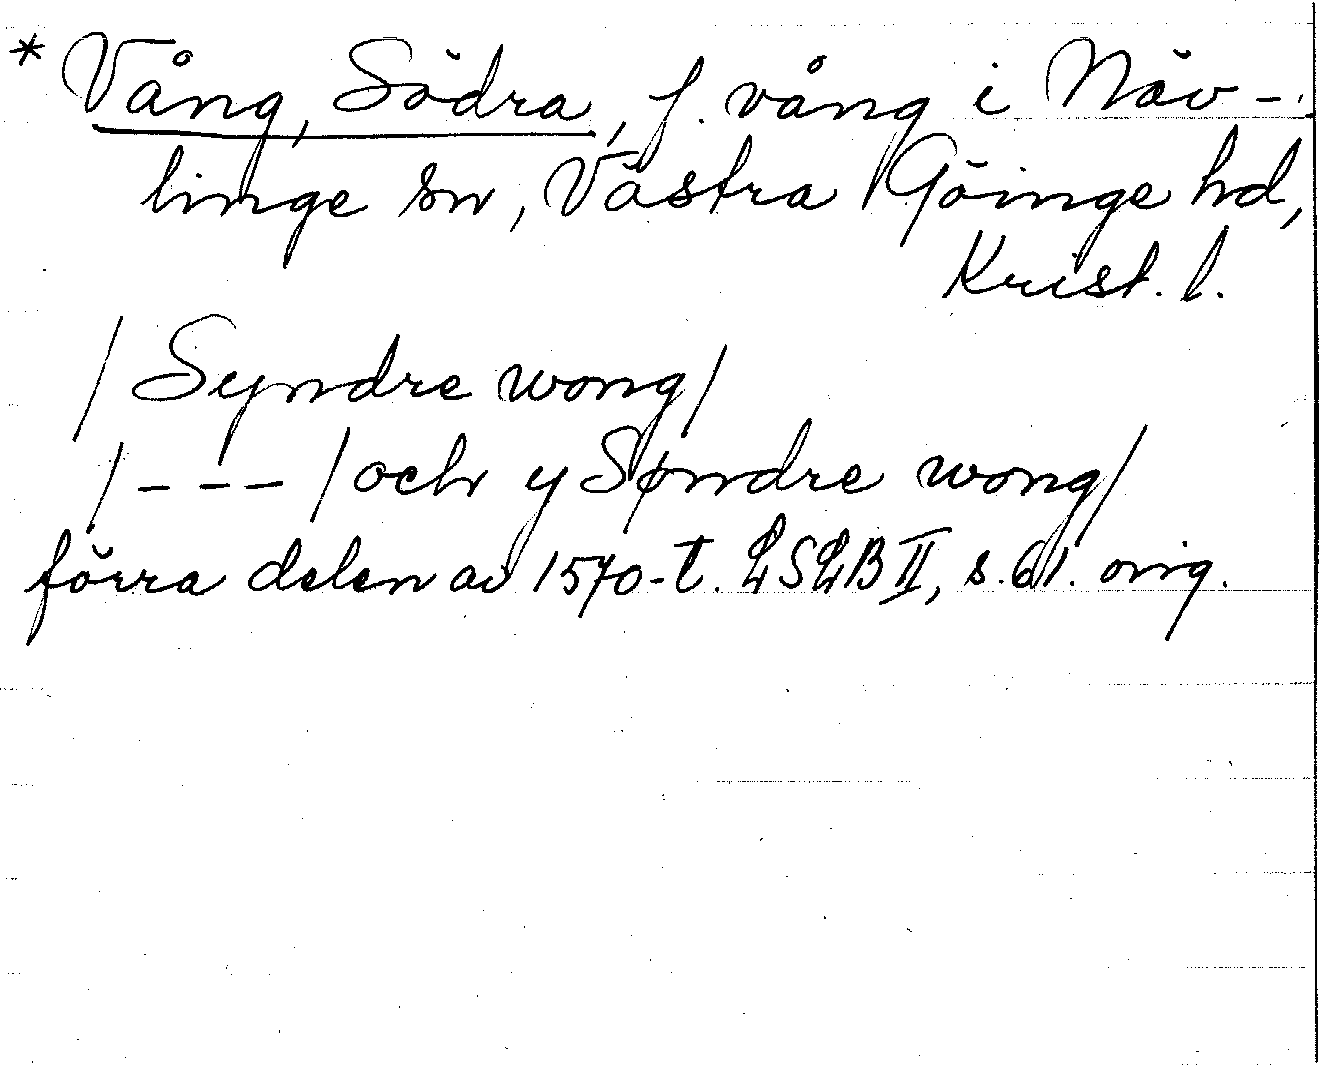 * Vång, Södra, f. vång i Näv-
linge sn, Västra Göinge hd,
Krist. l.
/ Syndre wong/
/ - - - / och y Søndre wong/
förra delen av 1570-t. LSLB II, s. 61. orig.